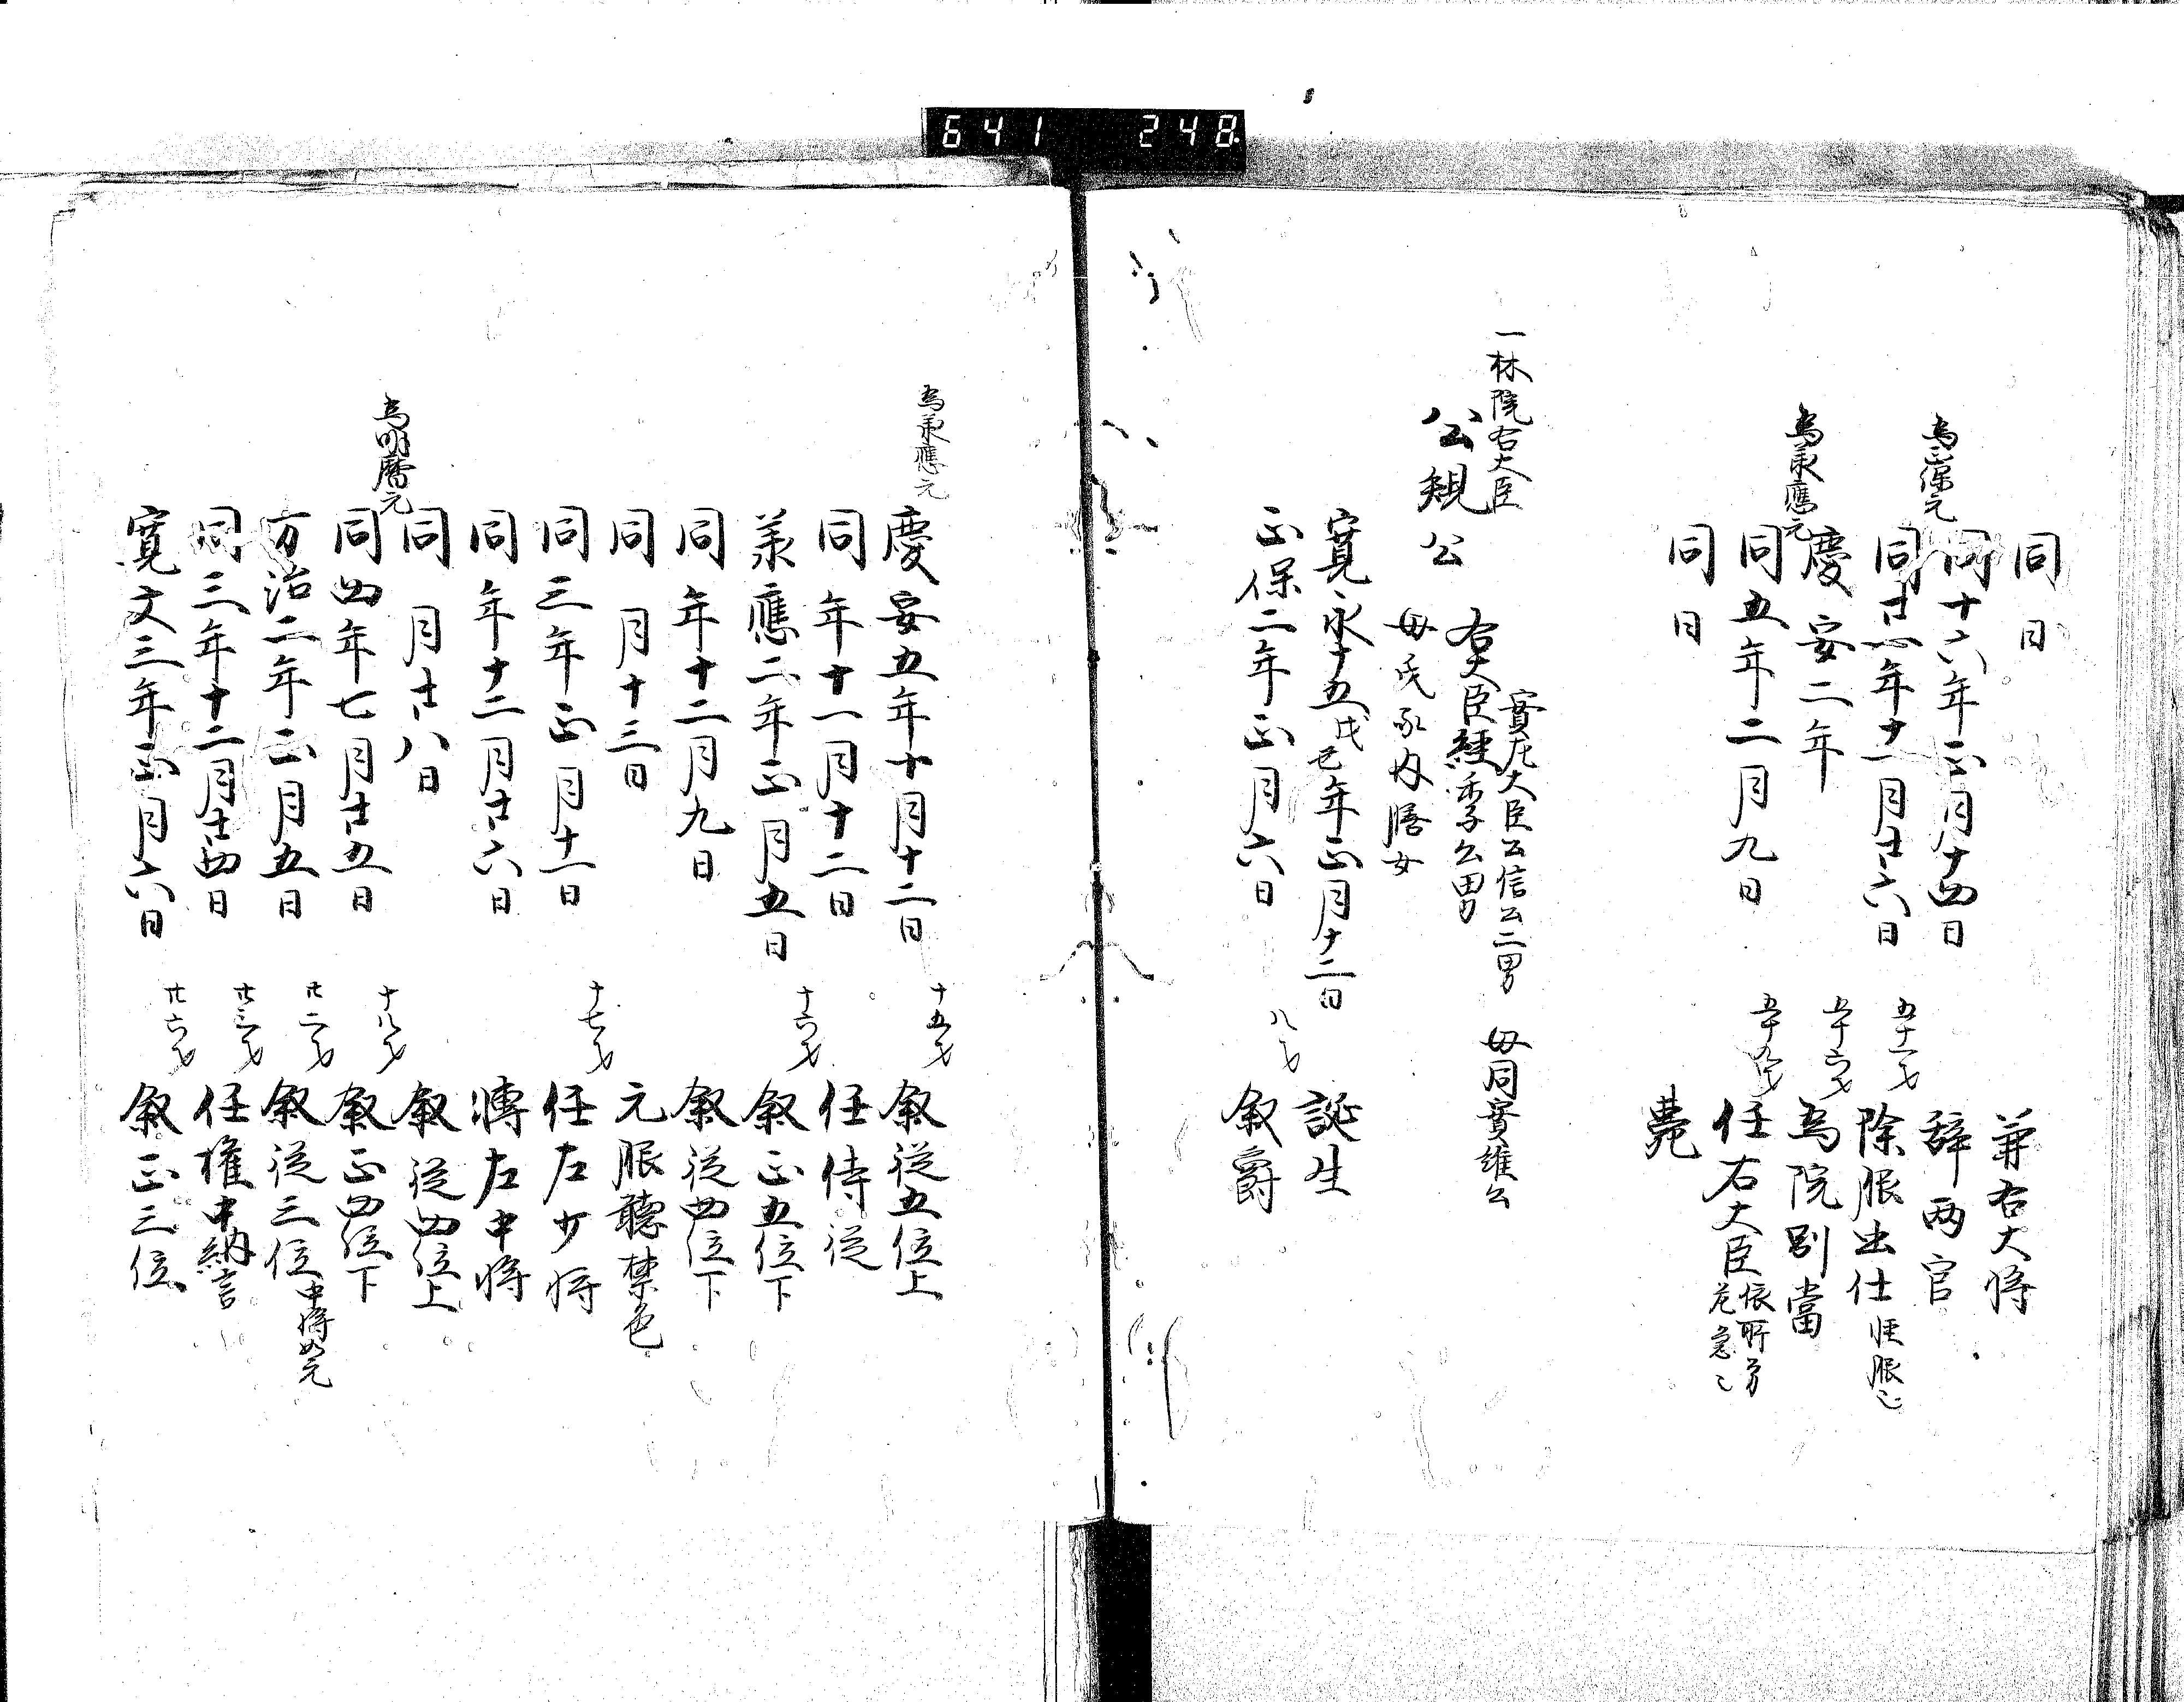 641 248
同日 兼右大将
同十六年正月十四日 辞両官
為正保元
同廿一年十一月廿六日 五十一才 除服出仕
慶安二年 五十六才 為院別當
為承應元
同五年二月九日 五十九才 任右大臣 依所労危急也
同日 薨
一林院右大臣
公規公 右大臣経季公男
實左大臣公信公二男 母同實維公
母氏家女
寛永十五戊 年正月十二日 誕生
正保二年正月六日 八才 叙爵
為承應元
慶安五年十月十二日 十五才 叙従五位上
同年十一月十二日 任侍従
承應二年正月五日 十六才 叙正五位下
同年十二月九日 叙従四位下
同月十三日 元服聴禁色
同三年正月十一日 十七才 任左少将
同年十二月廿六日 轉左中将
同月廿八日 叙従四位上
為明暦元
同四年七月廿五日 十八才 叙正四位下
万治二年正月五日 廿二才 叙従三位 中将如元
同三年十二月廿四日 廿三才 任権中納言
寛文三年正月六日 廿六才 叙正三位